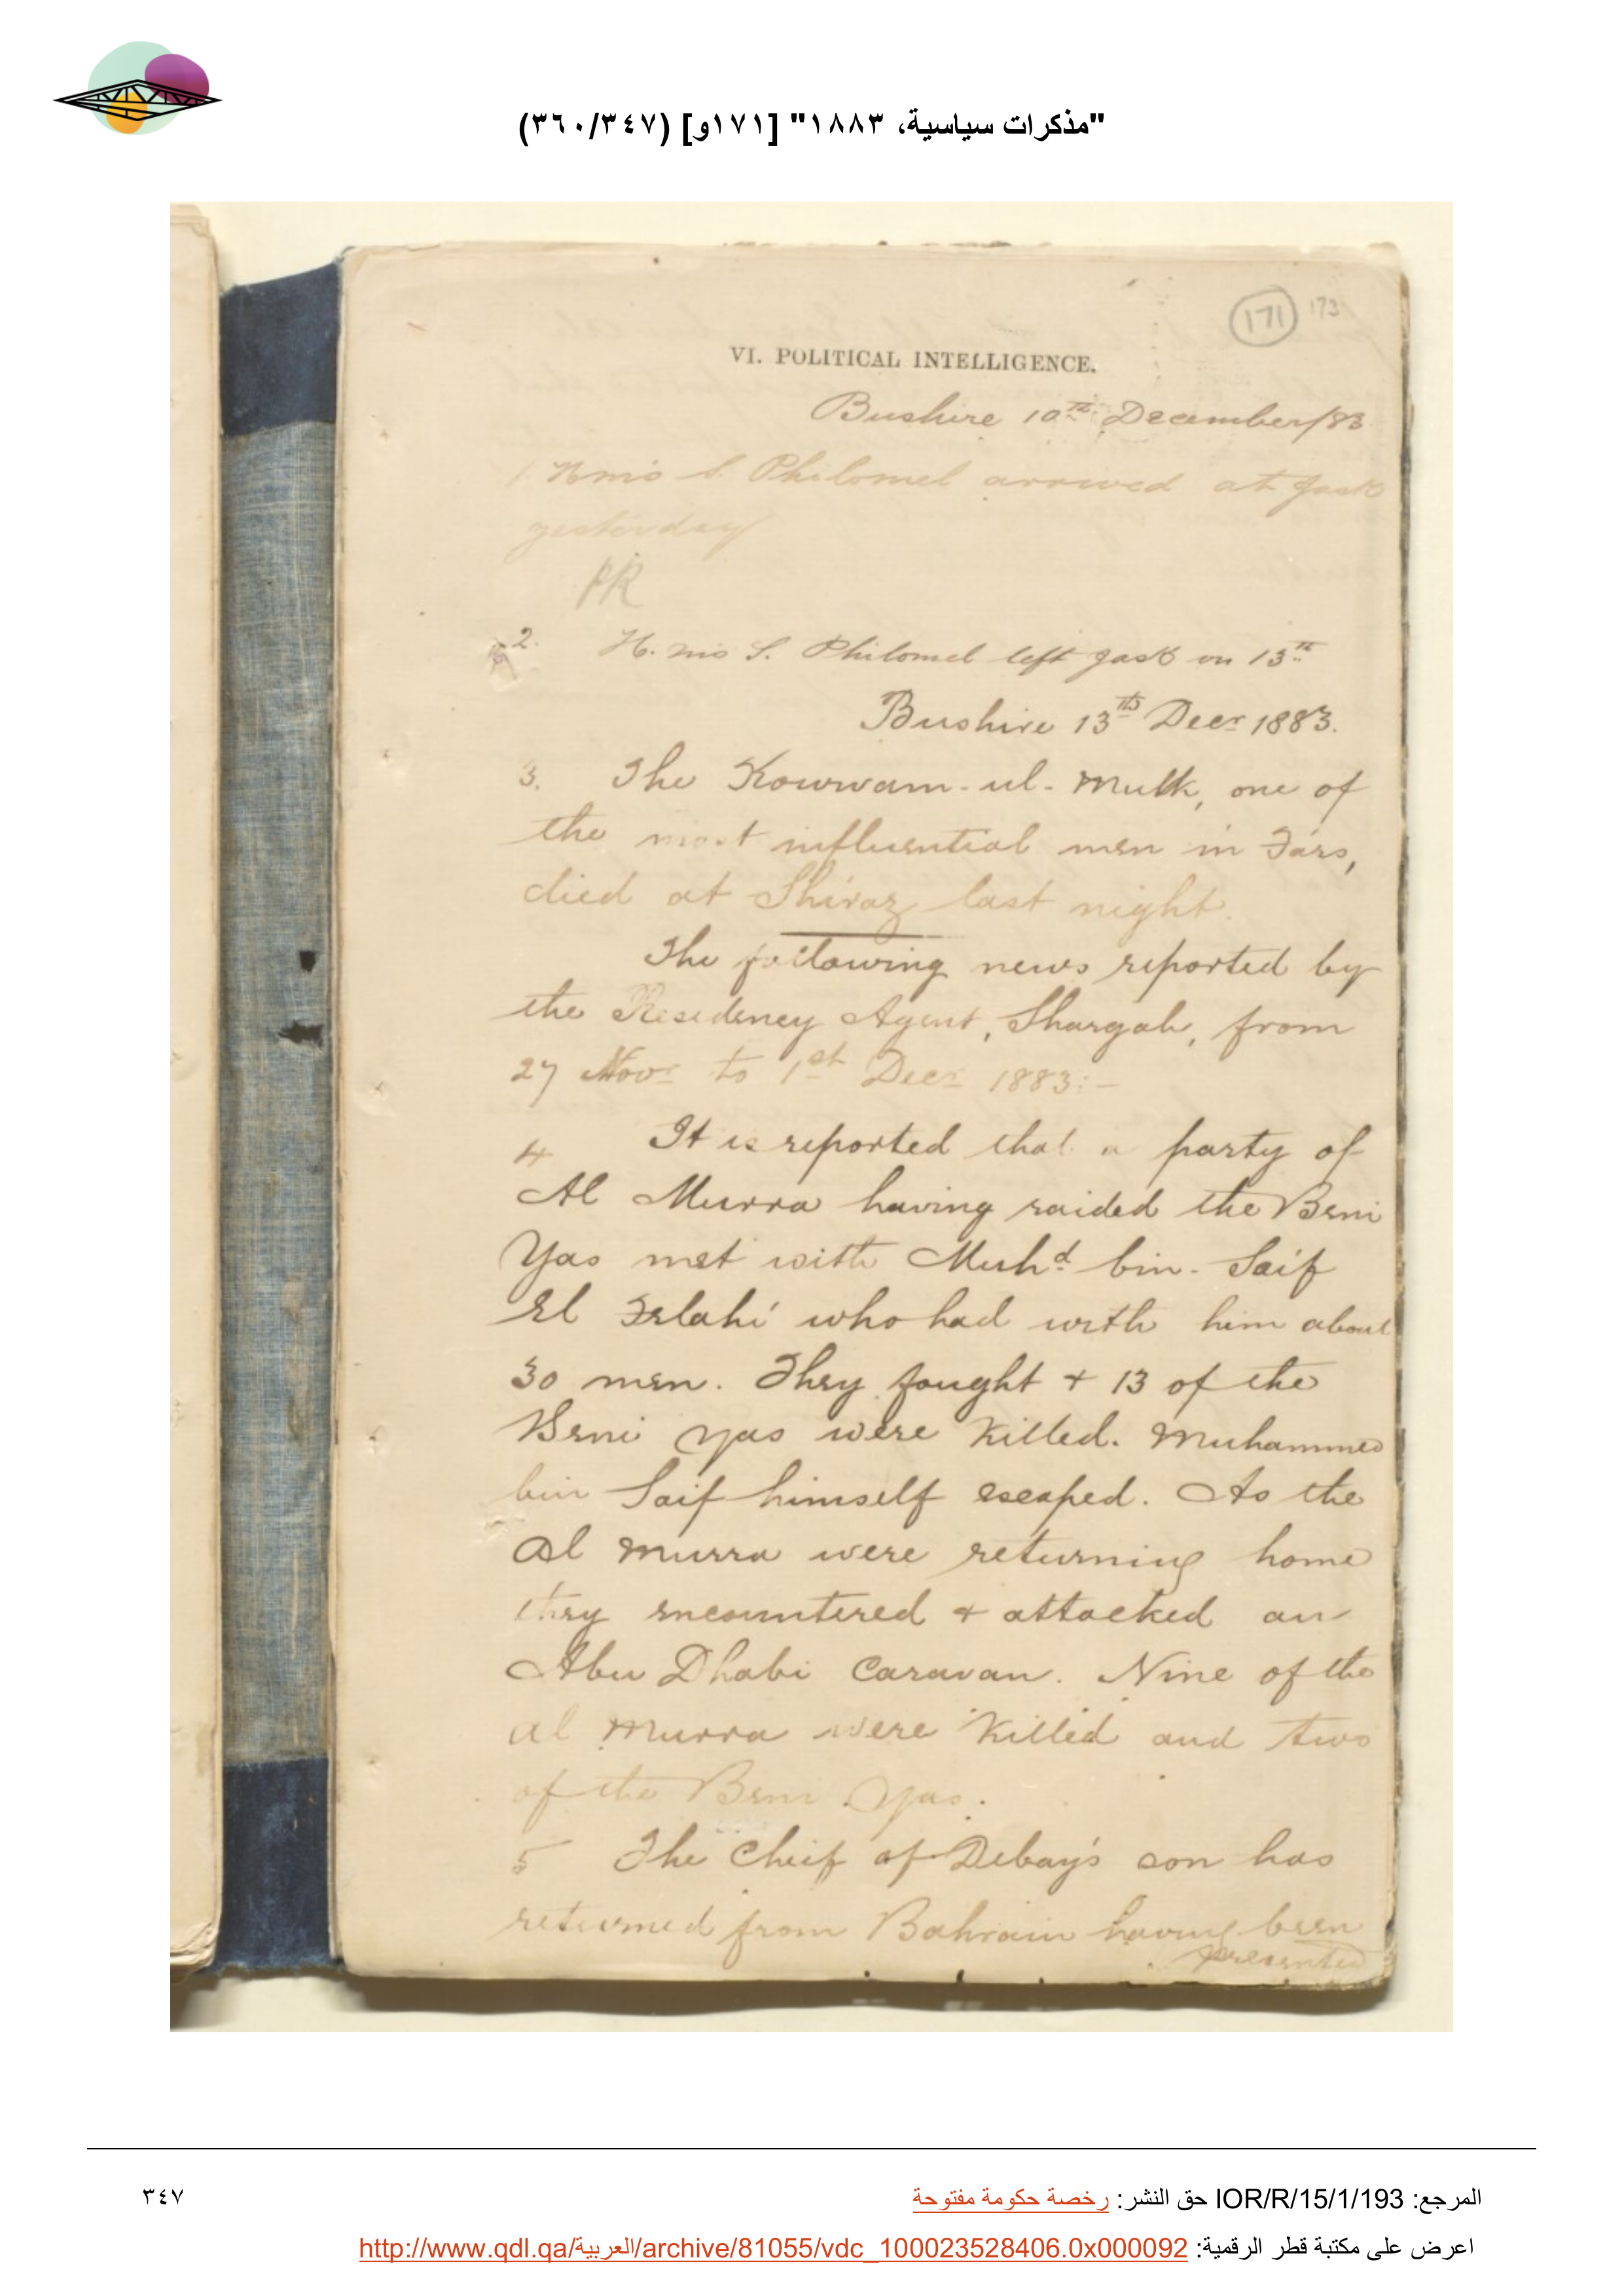 "مذكرات سياسية، ١٨٨٣" [١٧١و] (٣٤٧/٣٦٠)
171 173
VI. POLITICAL INTELLIGENCE.
Bushire 10th December/83
1 H.M.S. Philomel arrived at Jask
yesterday
2. H.M.S. Philomel left Jask on 13th
Bushire 13th Decr 1883.
3. The Kowwam-ul-Mulk, one of
the most influential men in Fárs,
died at Shiraz last night.
The following news reported by
the Residency Agent, Shargah, from
27 Novr to 1st Decr 1883:-
4 It is reported that a party of
Al Murra having raided the Beni
Yas met with Muhd bin-Saif
El Felahi who had with him about
30 men. They fought + 13 of the
Beni Yas were killed. Muhammed
bin Saif himself escaped. As the
Al Murra were returning home
they encountered + attacked an
Abu Dhabi Caravan. Nine of the
Al Murra were killed and two
of the Beni Yas.
5 The Cheif of Debay's son has
returned from Bahrain having been
presented
المرجع: IOR/R/15/1/193 حق النشر: رخصة حكومة مفتوحة
٣٤٧
اعرض على مكتبة قطر الرقمية: http://www.qdl.qa/العربية/archive/81055/vdc_100023528406.0x000092